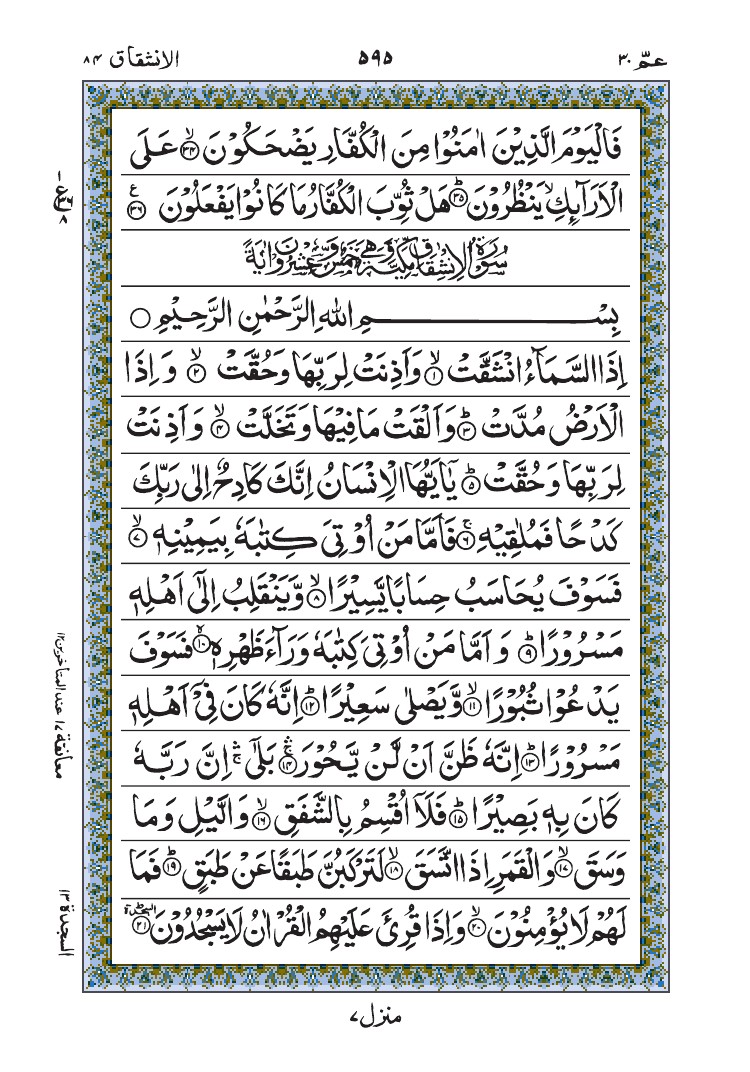 عمّ ٣٠
٥٩٥
الانشقاق ٨٤
فَالْيَوْمَ الَّذِيْنَ اٰمَنُوْا مِنَ الْكُفَّارِ يَضْحَكُوْنَ ۙ‏﴿۳۴﴾ عَلَى
الْاَرَآىِٕكِ ۙ يَنْظُرُوْنَ ؕ‏﴿۳۵﴾ هَلْ ثُوِّبَ الْكُفَّارُ مَا كَانُوْا يَفْعَلُوْنَ ‏﴿۳۶﴾ ع
سُوْرَةُ الْاِنْشِقَاقِ مَكِّيَّةٌ وَّهِيَ خَمْسٌ وَّعِشْرُوْنَ اٰيَةً
بِسْمِ اللّٰهِ الرَّحْمٰنِ الرَّحِيْمِ ○
اِذَا السَّمَآءُ انْشَقَّتْ ۙ‏﴿۱﴾ وَاَذِنَتْ لِرَبِّهَا وَحُقَّتْ ۙ‏﴿۲﴾ وَ اِذَا
الْاَرْضُ مُدَّتْ ؕ‏﴿۳﴾ وَاَلْقَتْ مَا فِيْهَا وَتَخَلَّتْ ۙ‏﴿۴﴾ وَ اَذِنَتْ
لِرَبِّهَا وَحُقَّتْ ؕ‏﴿۵﴾ يٰۤاَيُّهَا الْاِنْسَانُ اِنَّكَ كَادِحٌ اِلٰى رَبِّكَ
كَدْحًا فَمُلٰقِيْهِ ۚ‏﴿۶﴾ فَاَمَّا مَنْ اُوْتِيَ كِتٰبَهٗ بِيَمِيْنِهٖ ۙ‏﴿۷﴾
فَسَوْفَ يُحَاسَبُ حِسَابًا يَّسِيْرًا ۙ‏﴿۸﴾ وَّيَنْقَلِبُ اِلٰٓى اَهْلِهٖ
مَسْرُوْرًا ؕ‏﴿۹﴾ وَ اَمَّا مَنْ اُوْتِيَ كِتٰبَهٗ وَرَآءَ ظَهْرِهٖ ۙ‏﴿۱۰﴾ فَسَوْفَ
يَدْعُوْا ثُبُوْرًا ۙ‏﴿۱۱﴾ وَّيَصْلٰى سَعِيْرًا ؕ‏﴿۱۲﴾ اِنَّهٗ كَانَ فِيْۤ اَهْلِهٖ
مَسْرُوْرًا ؕ‏﴿۱۳﴾ اِنَّهٗ ظَنَّ اَنْ لَّنْ يَّحُوْرَ ۛۚ‏﴿۱۴﴾ بَلٰٓى ۛۚ اِنَّ رَبَّهٗ
كَانَ بِهٖ بَصِيْرًا ؕ‏﴿۱۵﴾ فَلَاۤ اُقْسِمُ بِالشَّفَقِ ۙ‏﴿۱۶﴾ وَالَّيْلِ وَمَا
وَسَقَ ۙ‏﴿۱۷﴾ وَالْقَمَرِ اِذَا اتَّسَقَ ۙ‏﴿۱۸﴾ لَتَرْكَبُنَّ طَبَقًا عَنْ طَبَقٍ ؕ‏﴿۱۹﴾ فَمَا
لَهُمْ لَا يُؤْمِنُوْنَ ۙ‏﴿۲۰﴾ وَاِذَا قُرِئَ عَلَيْهِمُ الْقُرْاٰنُ لَا يَسْجُدُوْنَ ‏﴿۲۱﴾ السجدة
معانقة ١٧ عند المتأخرين ١٢
السجدة ١٣
منزل ٧